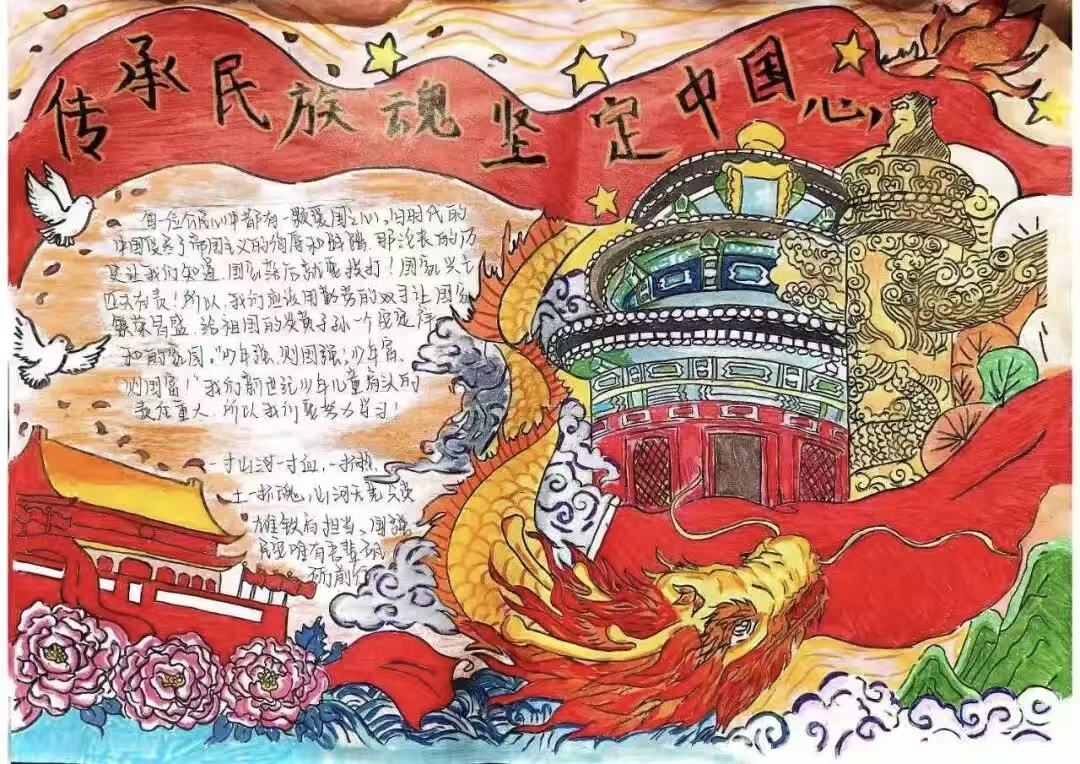 传承民族魂坚定中国心
每一位人民心中都有一颗爱国之心,旧时代的
中国受尽了帝国主义的侮辱和蹂躏,那沉衰的历
史让我们知道,国家落后就要挨打!国家兴亡
匹夫有责!所以,我们应该用勤劳的双手让国家
繁荣昌盛,给祖国的炎黄子孙一个安定详
和的家园。“少年强,则国强;少年富,
则国富!”我们新世纪少年儿童肩头的
责任重大,所以我们要努力学习!
一寸山河一寸血,一抔热
土一抔魂,山河无恙
英雄铁肩担当、国强
民安唯有吾辈砥
砺前行